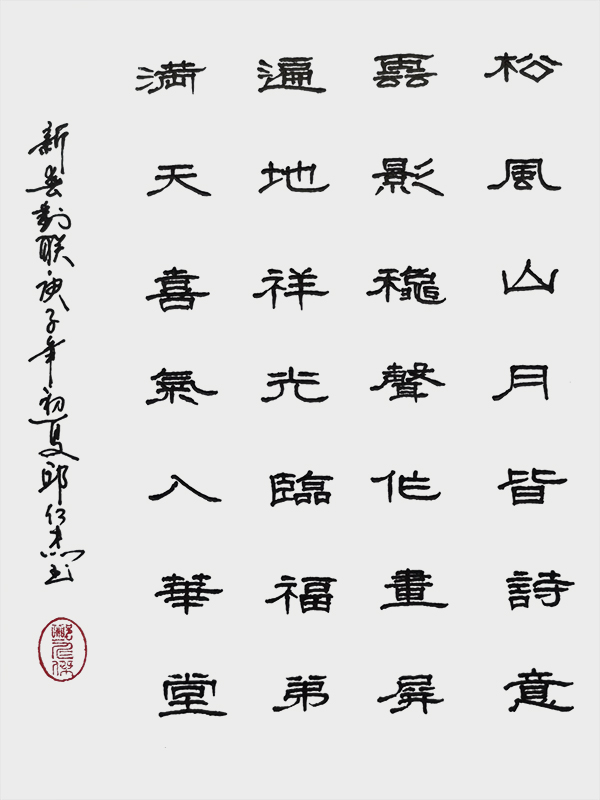 松風山月皆詩意
雲影穐聲作畫屏
遍地祥光臨福弟
満天喜氣入華堂
新春對联庚子年初夏邱仁杰书